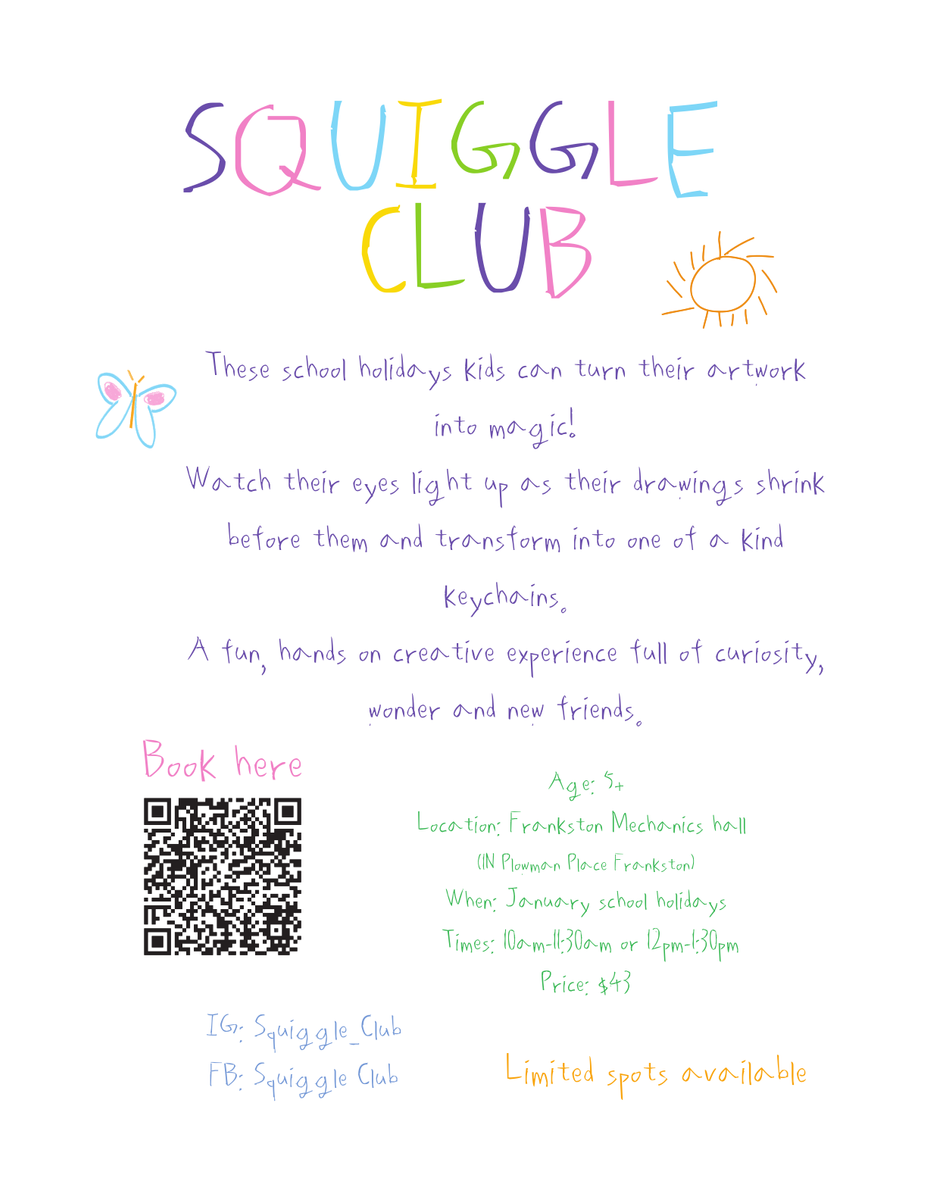 SQUIGGLE
CLUB
These school holidays kids can turn their artwork
into magic!
Watch their eyes light up as their drawings shrink
before them and transform into one of a kind
keychains.
A fun, hands on creative experience full of curiosity,
wonder and new friends.
Book here
Age: 5+
Location: Frankston Mechanics hall
(IN Plowman Place Frankston)
When: January school holidays
Times: 10am-11:30am or 12pm-1:30pm
Price: $43
IG: Squiggle_Club
FB: Squiggle Club
Limited spots available